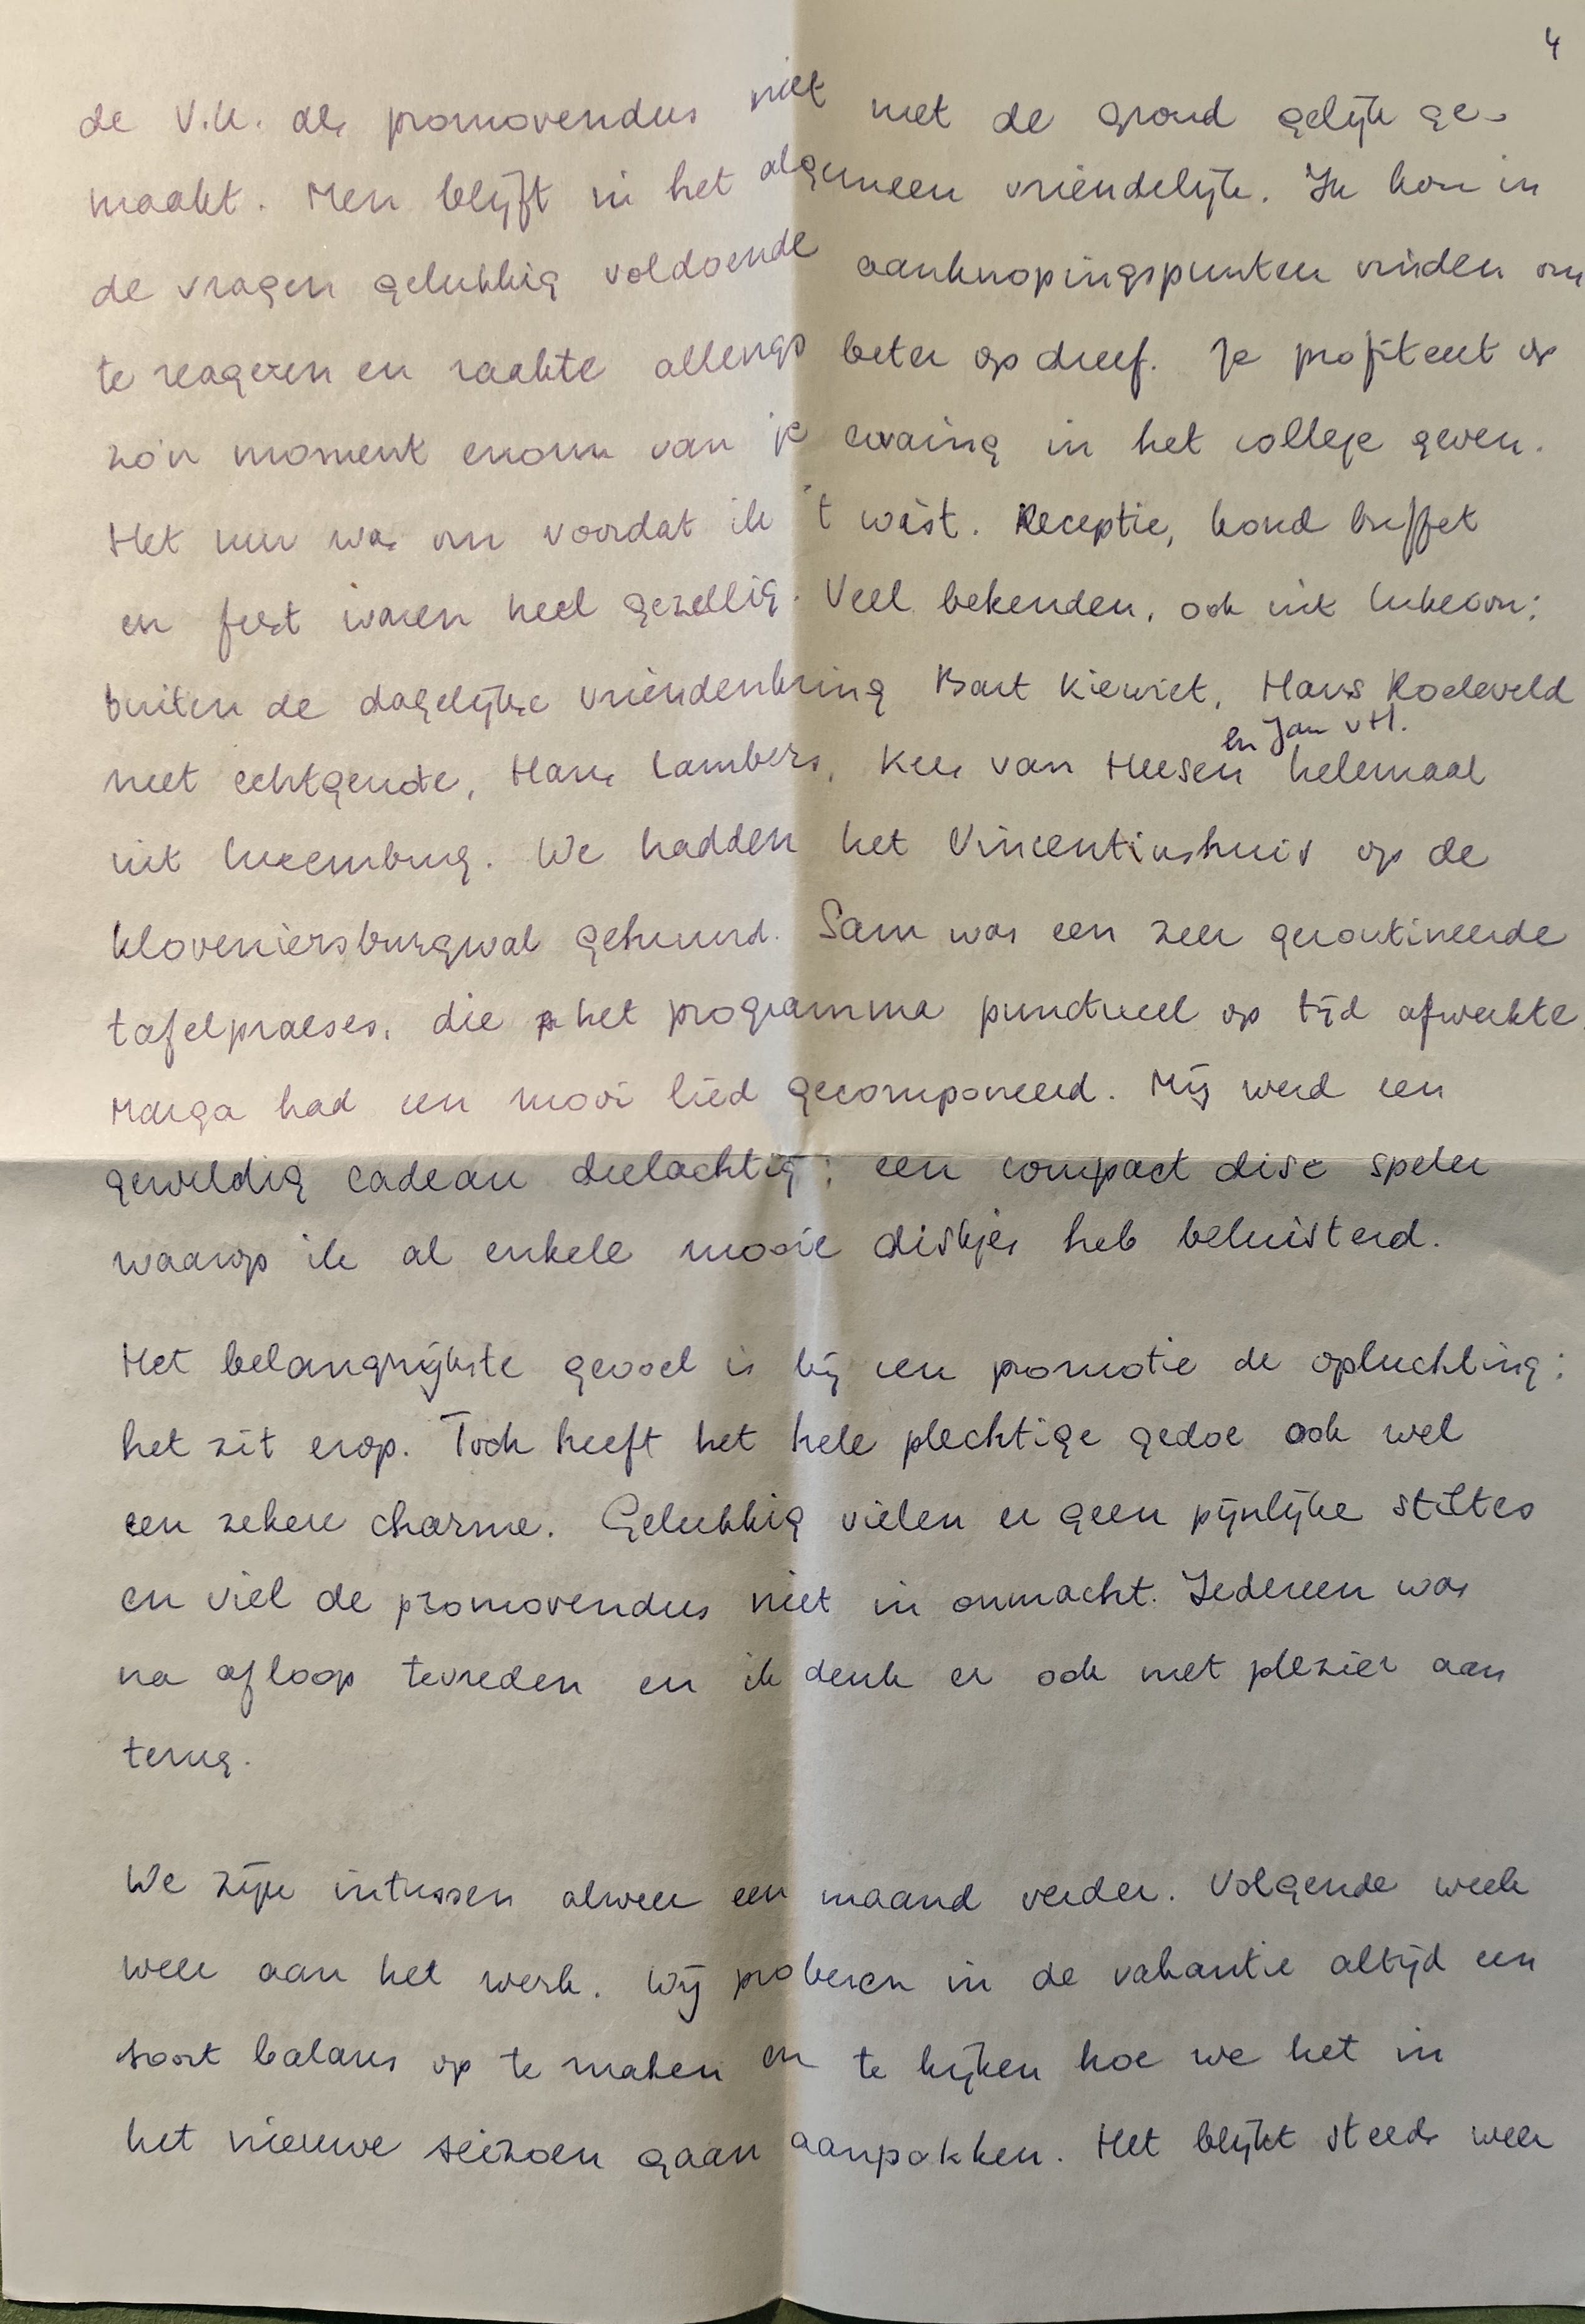 4
de V.U. de promovendus niet met de grond gelijk ge-
maakt. Men blijft in het algemeen vriendelijk. Ik kon in
de vragen gelukkig voldoende aanknopingspunten vinden om
te reageren en raakte allengs beter op dreef. Je profiteert op
zo'n moment enorm van je ervaring in het college geven.
Het uur was om voordat ik 't wist. Receptie, koud buffet
en feest waren heel gezellig. Veel bekenden, ook uit
buiten de dagelijkse vriendenkring Bart Kiewiet, Hans Roeleveld
en Jan v H.
met echtgenote, Hans Lambers, Kees van Heesen helemaal
uit Luxemburg. We hadden het Vincentiushuis op de
Kloveniersburgwal gehuurd. Sam was een zeer geroutineerde
tafelpraeses, die het programma punctueel op tijd afwerkte.
Marga had een mooi lied gecomponeerd. Mij werd een
geweldig cadeau deelachtig: een compact disc speler
waarop ik al enkele mooie diskjes heb beluisterd.
Het belangrijkste gevoel is bij een promotie de opluchting:
het zit erop. Toch heeft het hele plechtige gedoe ook wel
een zekere charme. Gelukkig vielen er geen pijnlijke stiltes
en viel de promovendus niet in onmacht. Iedereen was
na afloop tevreden en ik denk er ook met plezier aan
terug.
We zijn intussen alweer een maand verder. Volgende week
weer aan het werk. Wij proberen in de vakantie altijd een
soort balans op te maken en te kijken hoe we het in
het nieuwe seizoen gaan aanpakken. Het blijkt steeds weer